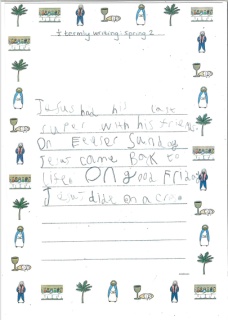 ½ termly writing: Spring 2
Jesus had his last
super with his friends
On Eester Sunday
Jesus came Back to
life. On good Friday
Jesus dide on a cros